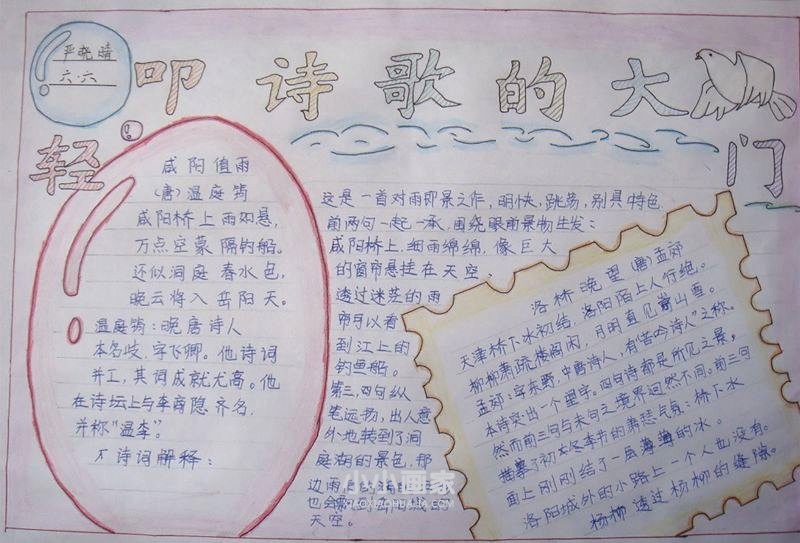 严晓晴
六.六
轻叩诗歌的大门
咸阳值雨
(唐)温庭筠
咸阳桥上雨如悬,
万点空蒙隔钓船。
还似洞庭春水色,
晓云将入岳阳天。
温庭筠:晚唐诗人
本名岐,字飞卿。他诗词
并工,其词成就尤高。他
在诗坛上与李商隐齐名,
并称“温李”。
诗词解释:
这是一首对雨即景之作,明快,跳荡,别具特色
前两句一起一承,围绕眼前景物生发:
咸阳桥上,细雨绵绵,像巨大
的窗帘悬挂在天空、
透过迷茫的雨
帘可以看
到江上的
钓鱼船。
第三,四句纵
笔运扬,出人意
外地转到了洞
庭湖的景色,那
边雨
也会
天空。
洛桥晚望(唐)孟郊
天津桥下冰初结,洛阳陌上人行绝。
榆柳萧疏楼阁闲,月明直见嵩山雪。
孟郊:字东野,中唐诗人,有“苦吟诗人”之称。
本诗突出一个望字。四句诗都是所见之景,
然而前三句与末句之境界迥然不同。前三句
描摹了初本冬季节的萧瑟气氛:桥下水
面上刚刚结了一层薄薄的冰。
洛阳城外的小路上一个人也没有。
杨柳透过杨柳的缝隙
小小画家
XIAOXIAOHUAJIA.COM